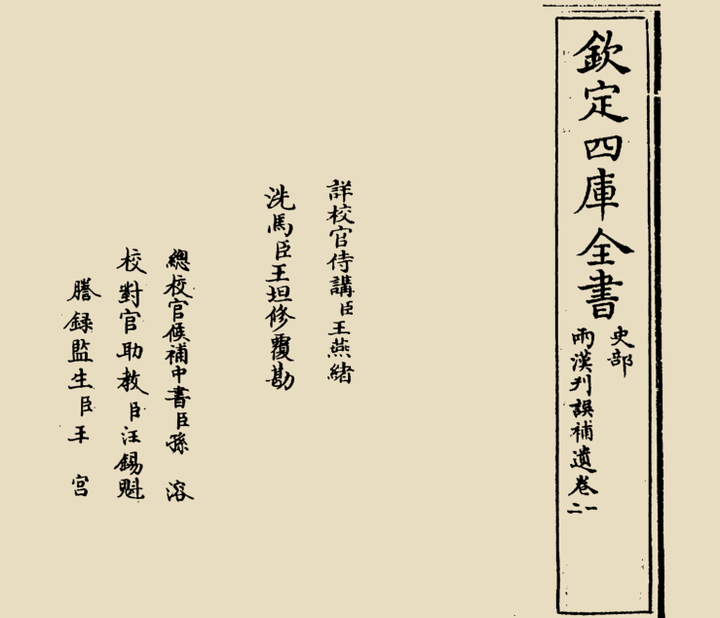 欽定四庫全書
史部
兩漢刋誤補遺卷一
二
詳校官侍講臣王燕緒
洗馬臣王坦修覆勘
總校官候補中書臣孫溶
校對官助教臣汪錫魁
謄録監生臣王宫